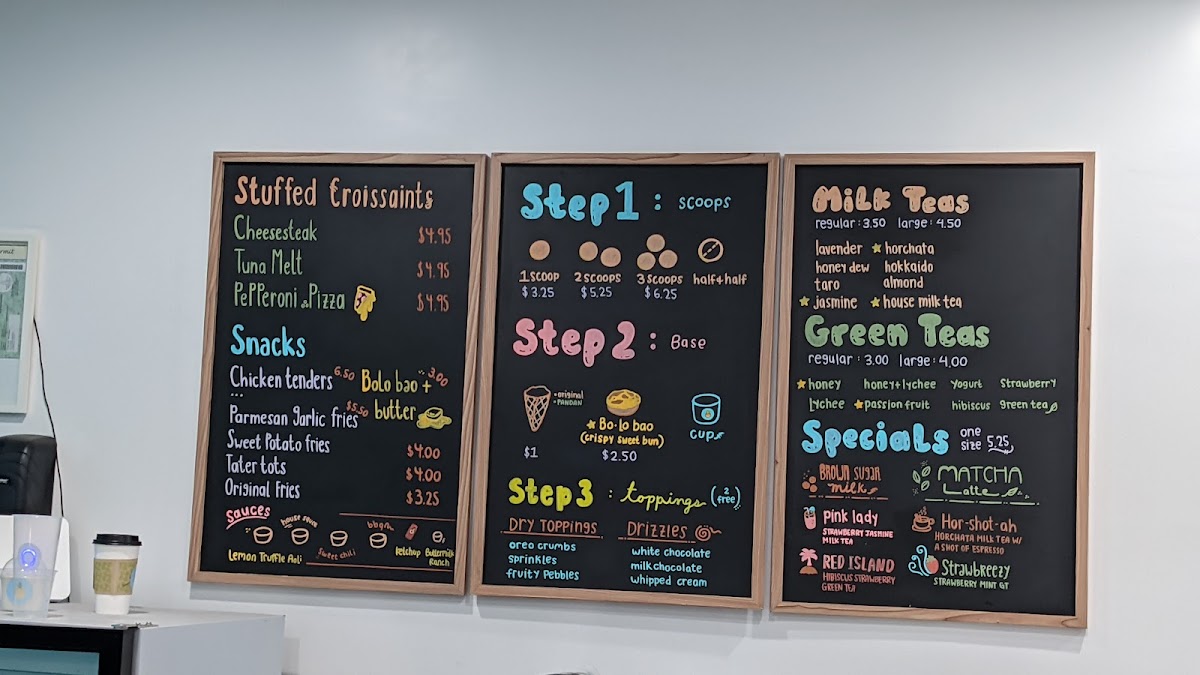 Stuffed Croissaints
Cheesesteak $4.95
Tuna Melt $4.95
Pepperoni & Pizza $4.95
Snacks
Chicken tenders 6.50
Bolo bao + butter 3.00
Parmesan garlic fries $5.50
Sweet Potato fries $4.00
Tater tots $4.00
Original fries $3.25
Sauces
house sauce
bbq
Lemon Truffle Aoli
sweet chili
ketchup
Buttermilk
Ranch
Step 1 : scoops
1 scoop 2 scoops 3 scoops half+half
$3.25 $5.25 $6.25
Step 2 : Base
• original
• PANDAN
Bo·lo bao
(crispy sweet bun)
cup
$1 $2.50
Step 3 : toppings (2 free)
DRY TOPPINGS
oreo crumbs
sprinkles
fruity Pebbles
Drizzles
white chocolate
milk chocolate
whipped cream
Milk Teas
regular : 3.50 large : 4.50
lavender horchata
honey dew hokkaido
taro almond
jasmine house milk tea
Green Teas
regular : 3.00 large : 4.00
honey honey+lychee yogurt strawberry
lychee passion fruit hibiscus green tea
Specials one size 5.25
BROWN SUGAR
milk
MATCHA
Latte
pink lady
STRAWBERRY JASMINE
MILK TEA
Hor-shot-ah
HORCHATA MILK TEA W/
A SHOT OF ESPRESSO
RED ISLAND
HIBISCUS STRAWBERRY
GREEN TEA
Strawbreezy
STRAWBERRY MINT GT